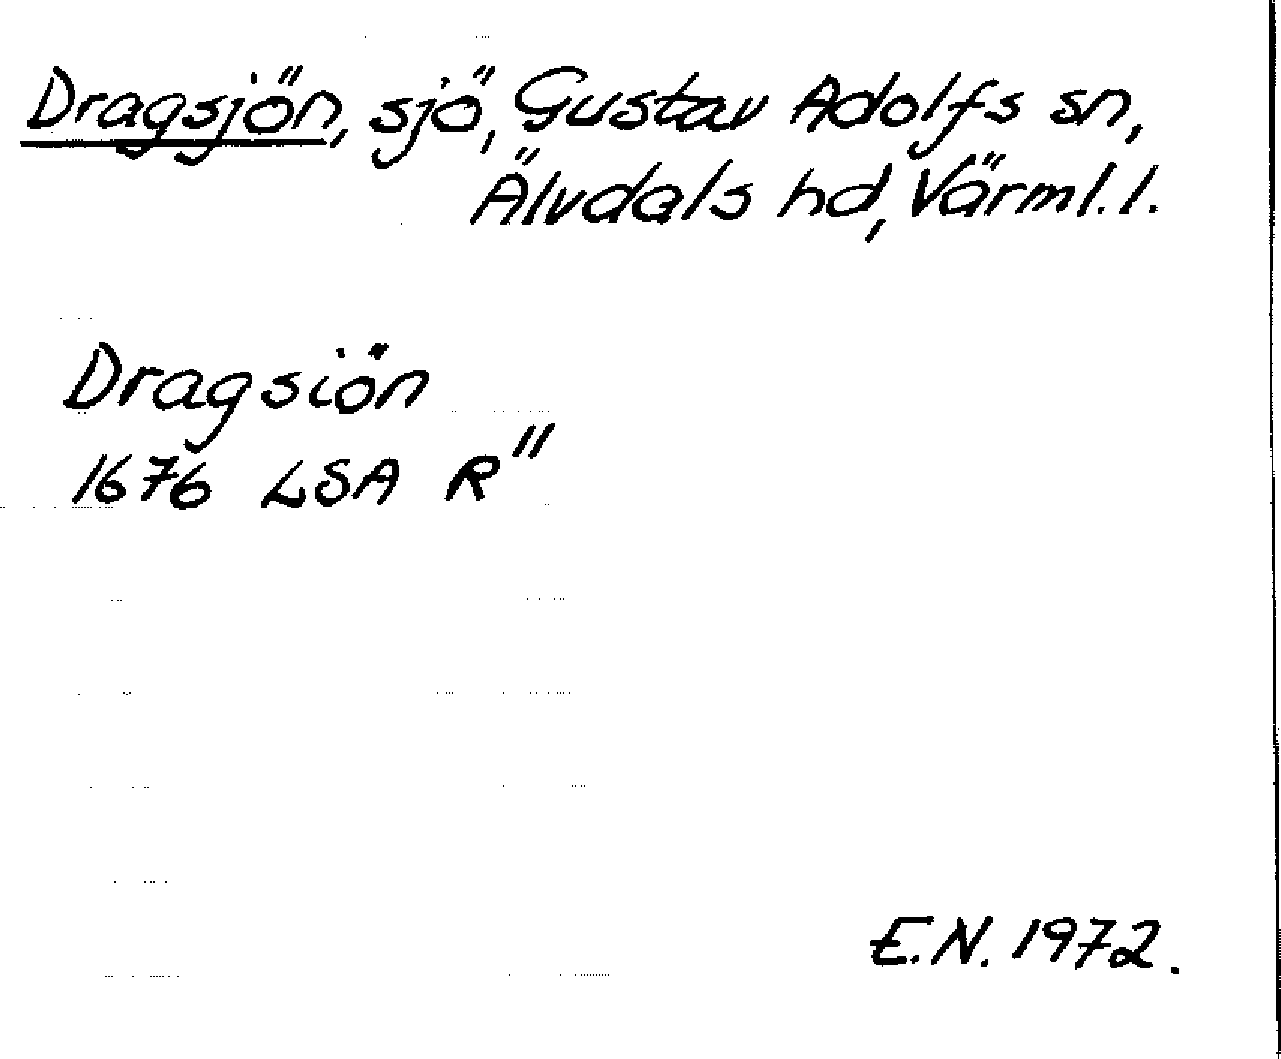 Dragsjön, sjö, Gustav Adolfs sn,
Älvdals hd, Värml. l.
Dragsiön
1676 LSA R"
E.N. 1972.